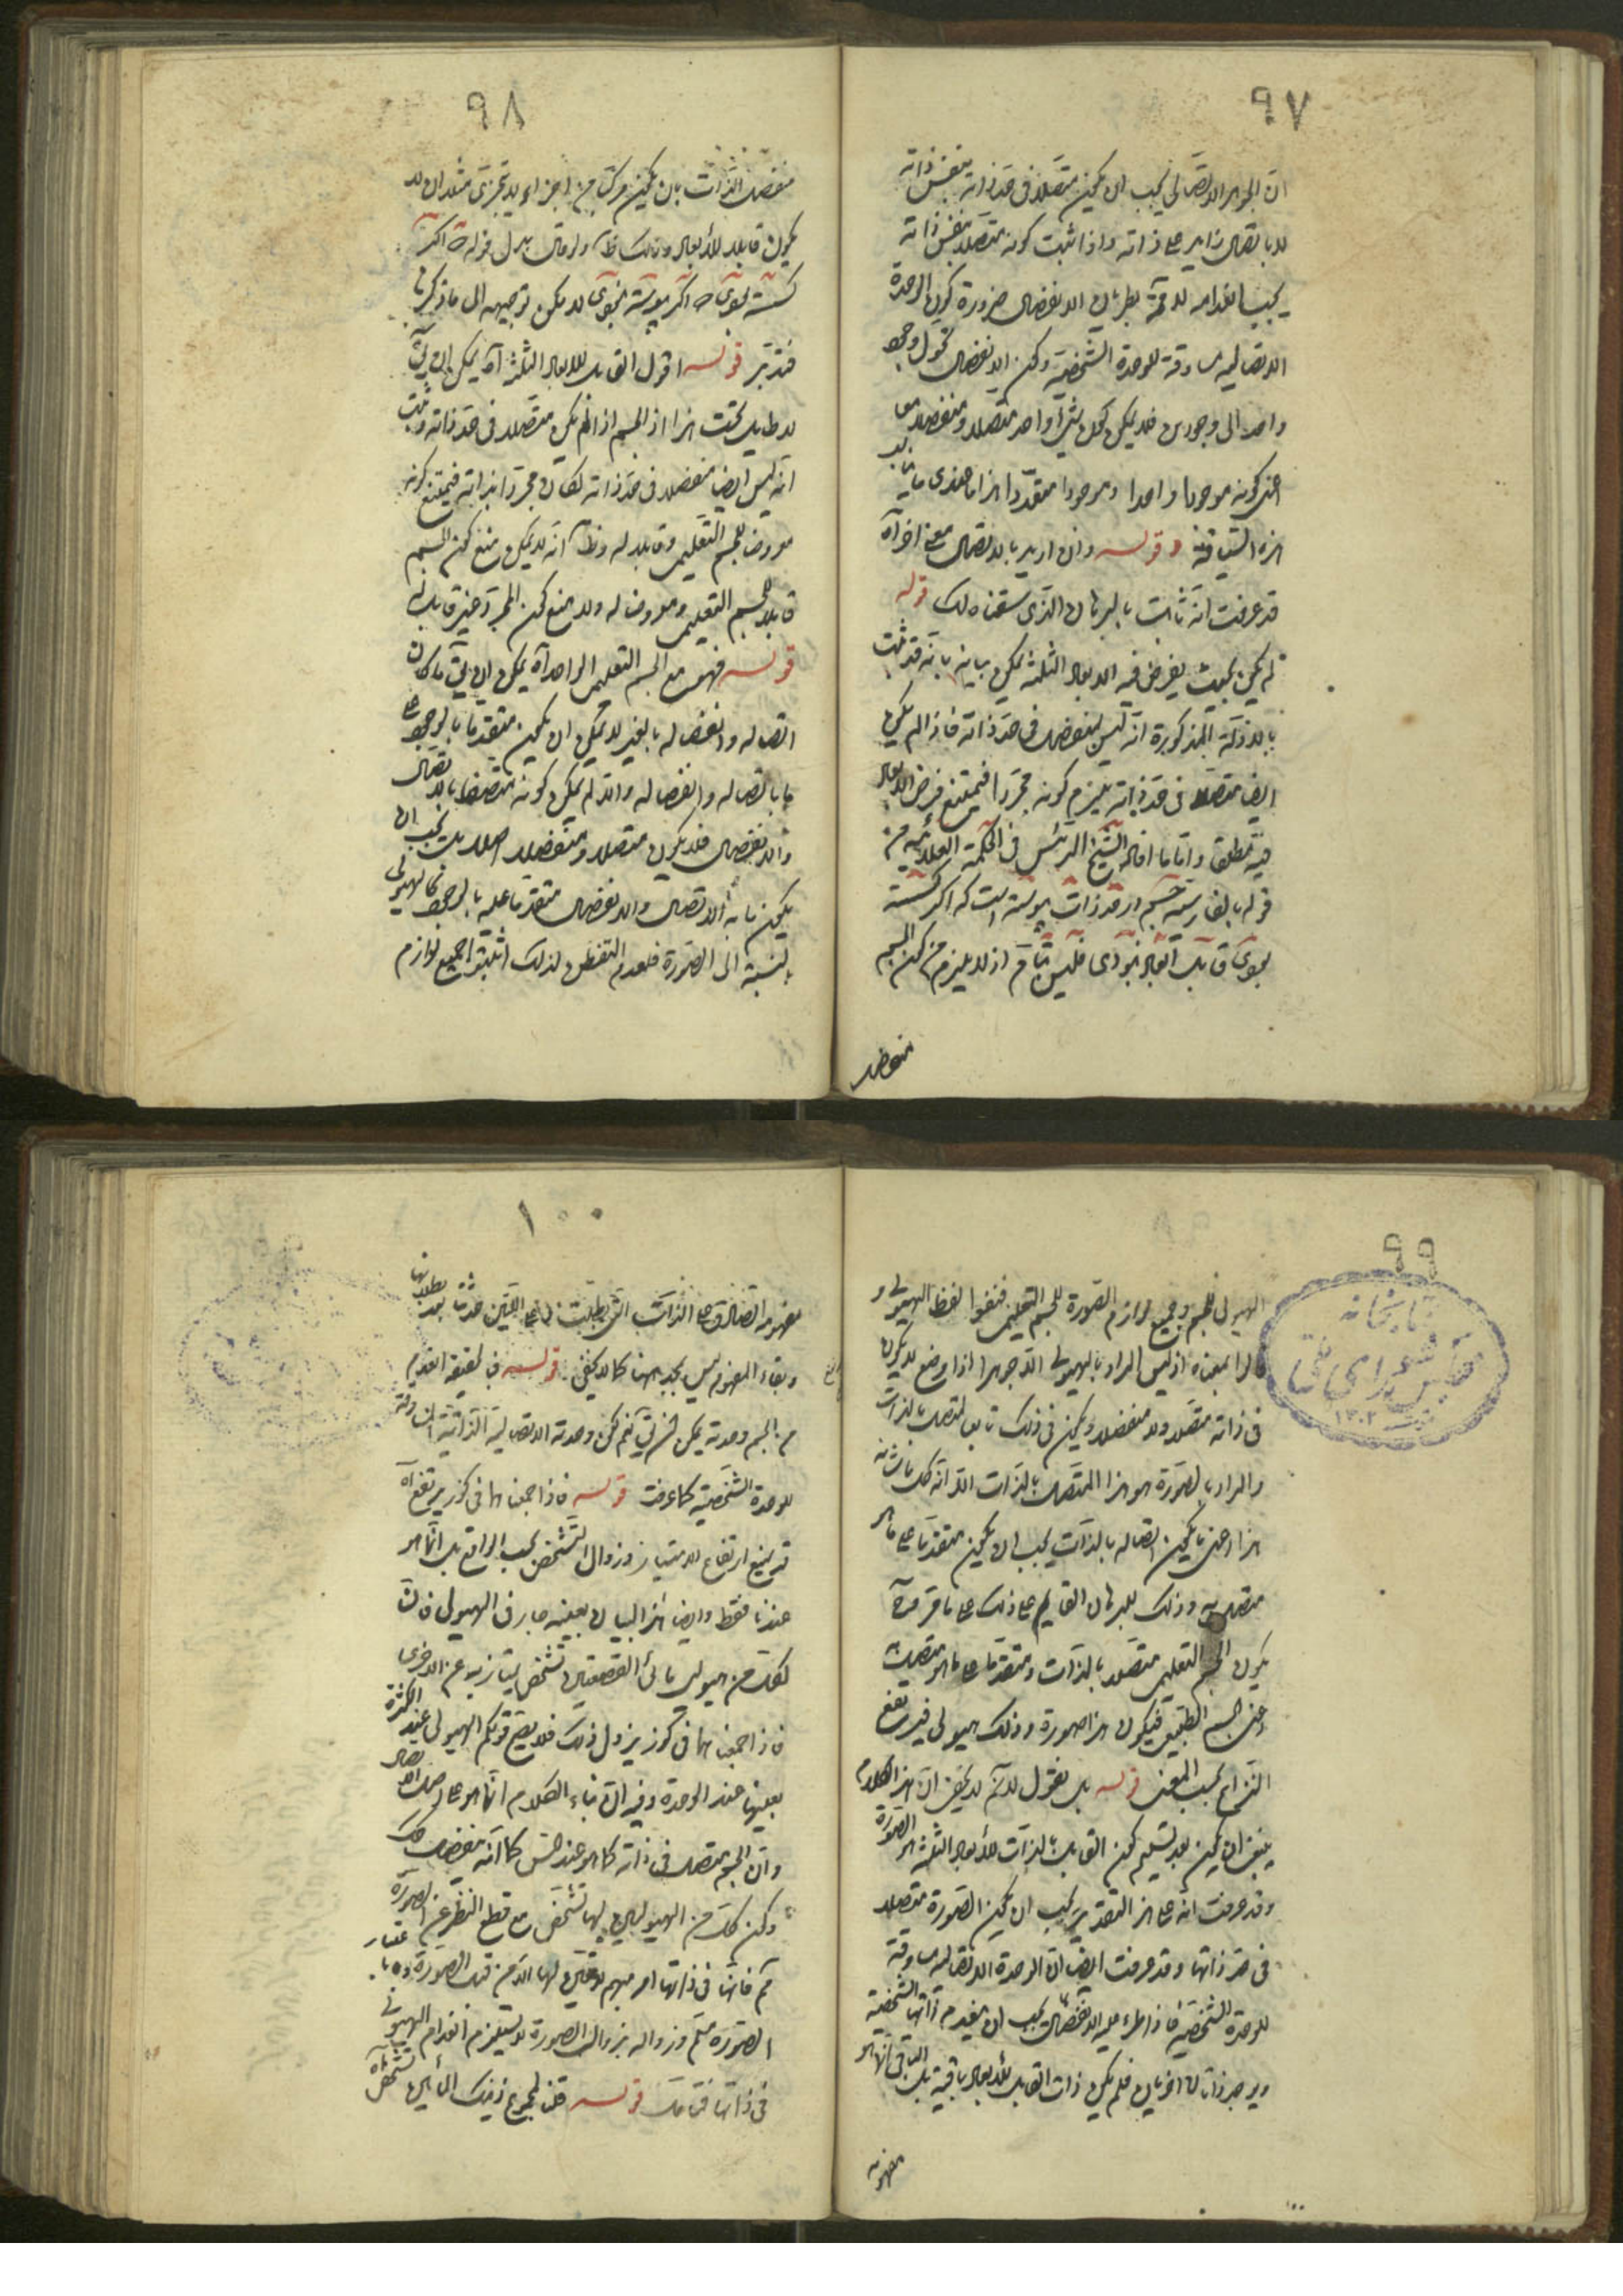 ٩٧
ان الجوهر الاتصالي يجب ان يكون متصلا في حد ذاته بنفس ذاته
لا باتصال زايد على ذاته واذا ثبت كونه متصلا بنفس ذاته
يجب انعدامه لا محة بطريان الانفصال ضرورة كون الوحدة
الاتصالية مساوقة للوحدة الشخصية وكن الانفصال تحول وجود
واحد الى وجودين فلا يمكن كون شئ واحد متصلا ومنفصلا معا
اعنى كونه موجودا واحدا وموجودا متعددا هذا ما عندى
هذه وقوله وان اريد بالاتصال معنى اخر آه
قد عرفت انه ثابت بالبرهان الذى سقناه لك قوله
لم يكن بحيث يفرض فيه الابعاد الثلثة يمكن بيانه بانه قد ثبت
بالادلة المذكورة انه ليس بمنفصل في حد ذاته فاذا لم يكن
ايضا متصلا في حد ذاته يلزم كونه مجردا فيمتنع فرض الابعاد
فيه مطلقا واما ما افاده الشيخ الرئيس في الحكمة العلائية من
قوله بالفارسية جسم در حد ذات پيوسته است كه اكر كسسته
بودى قابل ابعاد نبودى فليس بتام اذ لا يلزم من كون الجسم
منفصل
٩٨
منفصل الذات بان يكون مركبا من اجزاء لا يتجزى مثلا ان لا
يكون قابلا للابعاد وذلك ظ ولو قال بدل قوله كه اكر
كسسته بودى كه اكر پيوسته نبودى لامكن توجيهه الى ما ذكرنا
فتدبر قوله اقول القابل للابعاد الثلثة آه يمكن ان يق
لا طايل تحت هذا اذ الجسم اذا لم يكن متصلا في حد ذاته وثبت
انه ليس ايضا منفصلا في حد ذاته لكان مجردا بذاته فيمتنع كونه
معروضا للجسم التعليمى وقابلا له وظ انه لا يمكن منع كون الجسم
قابلا للجسم التعليمى ومعروضا له ولا منع كون المجرد غير قابل له
قوله فهو مع الجسم التعليمى الواحد آه يمكن ان يق ما كان
اتصاله وانفصاله بالغير لا يمكن ان يكون متقدما بالوجود على
ما باتصاله وانفصاله والا لم يمكن كونه متصفا بالاتصال
والانفصال فلا يكون متصلا ومنفصلا اصلا بل يجب ان
يكون ما به الاتصال والانفصال متقدما عليه بالوجود كالهيولى
بالنسبة الى الصورة فلعدم التفطن لذلك اثبتوا جميع لوازم
٩٩
الهيولى للجسم وجميع لوازم الصورة للجسم التعليمى فنفوا لفظ الهيولى و
قالوا بمعناه اذ ليس المراد بالهيولى الا جوهرا اذا وضع لا يكون
في ذاته متصلا ولا منفصلا ويكون في ذلك تابعا للمتصل بالذات
والمراد بالصورة هو هذا المتصل بالذات الا انه كل ما شانه
هذا اعنى ما يكون اتصاله بالذات يجب ان يكون متقدما على ما هو
متصل به وذلك للبرهان القايم على ذلك على ما قررناه
يكون الجسم التعليمى متصلا بالذات ومتقدما على ما هو متصل به
اعنى الجسم الطبيعى فيكون هذا صورة وذلك هيولى فيرتفع
النزاع بحسب المعنى قوله بل نقول لانه لا يخفى ان هذا الكلام
ينبغى ان يكون بعد تسليم كون القابل بالذات للابعاد الثلثة هو الصورة
وقد عرفت انه على هذا التقدير يجب ان يكون الصورة متصلا
في حد ذاتها وقد عرفت ايضا ان الوحدة الاتصالية مساوقة
للوحدة الشخصية فاذا طرء عليه الانفصال يجب ان ينعدم ذاتها الشخصية
ويوجد ذاتان اخريان فلم يكن ذات القابل للابعاد باقية بل الباقى انما هو
مفهومه
١٠٠
مفهومه الصادق على الذات التى بطلت وعلى اللتين حدثتا بعد بطلانها
وبقاء المفهوم ليس بمجد ههنا كما لا يخفى قوله في لحقيقة انعدم
من الجسم وحدته يمكن فنرق نعم لكن وحدته الاتصالية الذاتية المساوقة
للوحدة الشخصية كما عرفت قوله فاذا جمعناهما في كوز يرتفع آه
قد يمنع ارتفاع الامتياز وزوال التشخص بحسب الواقع بل انما هو
عندنا فقط وايضا هذا البيان بعينه جار في الهيولى فان
لكل من هيولى مائى القصعتين تشخص يمتاز به عن الاخرى
فاذا جمعناهما في كوز يزول ذلك فلا يصح قولكم الهيولى عند الكثرة
بعينها عند الوحدة وفيه ان بناء الكلام انما هو على اصل الاتصال
وان الجسم متصل في ذاته كما هو عند الحس كما انه منفصل
وكون كل من الهيوليين لها تشخص مع قطع النظر عن الصورة
مم فانها في ذاتها امر مبهم لا تعين لها الا من قبل الصورة وباعتبار
الصورة مسلم وزواله بزوال الصورة لا يستلزم انعدام الهيولى
في ذاتها فتامل قوله قلنا لمجموع ذينك المائين تشخص آه